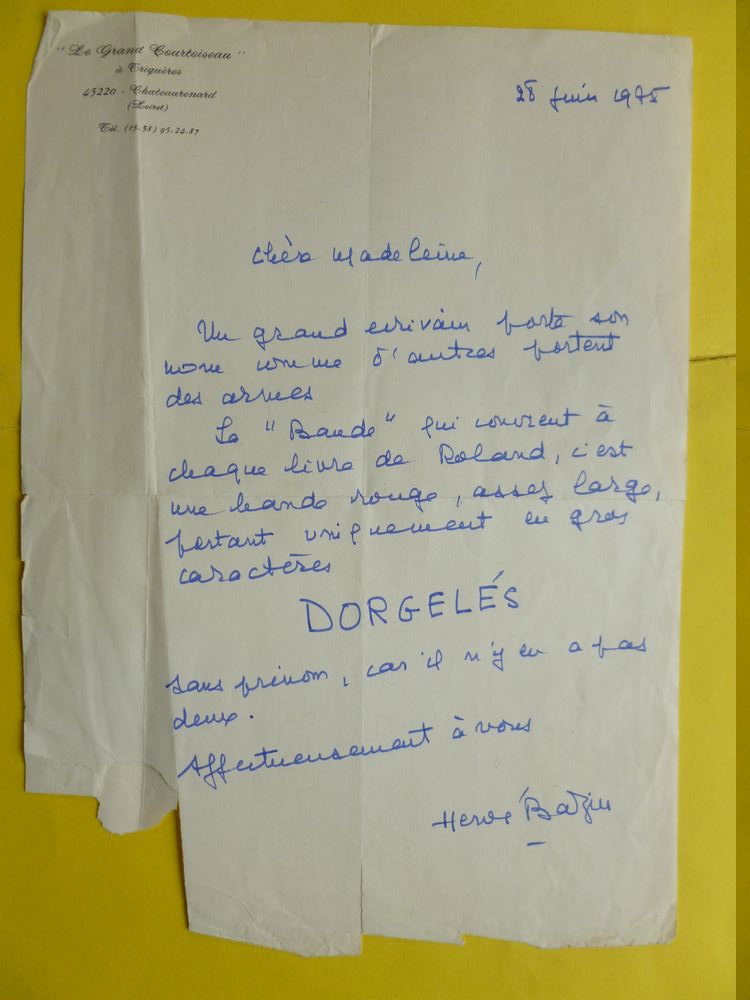 "Le Grand Courtoiseau"
à Triguères
45220 - Chateaurenard
(Loiret)
Tél. (15-38) 95.24.87
28 juin 1975
Chère Madeleine,
Un grand écrivain porte son
nom comme d'autres portent
des armes
La "Bande" qui convient à
chaque livre de Roland, c'est
une bande rouge, assez large,
portant uniquement en gros
caractères
DORGELÉS
sans prénom, car il n'y en a pas
deux.
Affectueusement à vous
Hervé Bazin